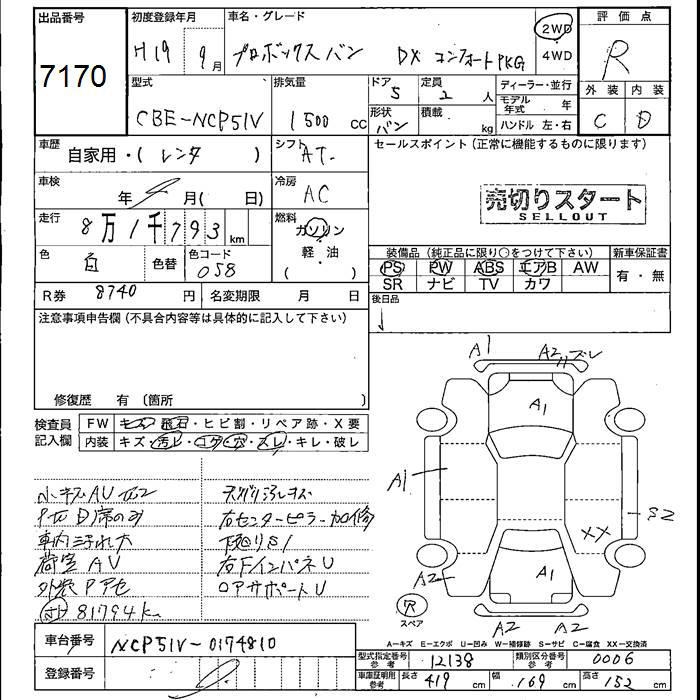 出品番号
7170
初度登録年月
H19 9月
車名・グレード
プロボックスバン DX コンフォートPKG
2WD
4WD
評価点
R
外装 内装
C D
型式
CBE-NCP51V
排気量
1500 cc
ドア 5
定員 2 人
形状 バン
積載 kg
ディーラー・並行
モデル年式 年
ハンドル 左・右
車歴
自家用・( レンタ )
シフト AT
セールスポイント(正常に機能するものに限ります)
売切りスタート
SELLOUT
車検 年 月( 日)
冷房 AC
走行 8万1千793km
燃料 ガソリン
軽・油
( )
色 白
色替
色コード 058
R券 8740 円
名変期限 月 日
装備品(純正品に限り○をつけて下さい)
PS PW ABS エアB AW
SR ナビ TV カワ
新車保証書
有・無
後日品
注意事項申告欄(不具合内容等は具体的に記入して下さい)
修復歴 有 〔箇所 〕
検査員記入欄
FW キズ・飛石・ヒビ割・リペア跡・X要
内装 キズ・汚レ・コゲ・穴・スレ・キレ・破レ
小キズAU
車内汚れ大
荷室AU
外装Pアセ
81794km
右センターピラー加修
右FインパネU
ロアサポートU
A1
A2
ズレ
A1
A1
S2
XX
A2
A1
A2
A2
R
スペア
A-キズ E-エクボ U-凹み W-補修跡 S-サビ C-腐食 XX-交換済
車台番号 NCP51V-0174810
登録番号
型式指定番号 参考 12138
類別区分番号 参考 0006
車庫証明用 参考
長さ 419 cm
幅 169 cm
高さ 152 cm